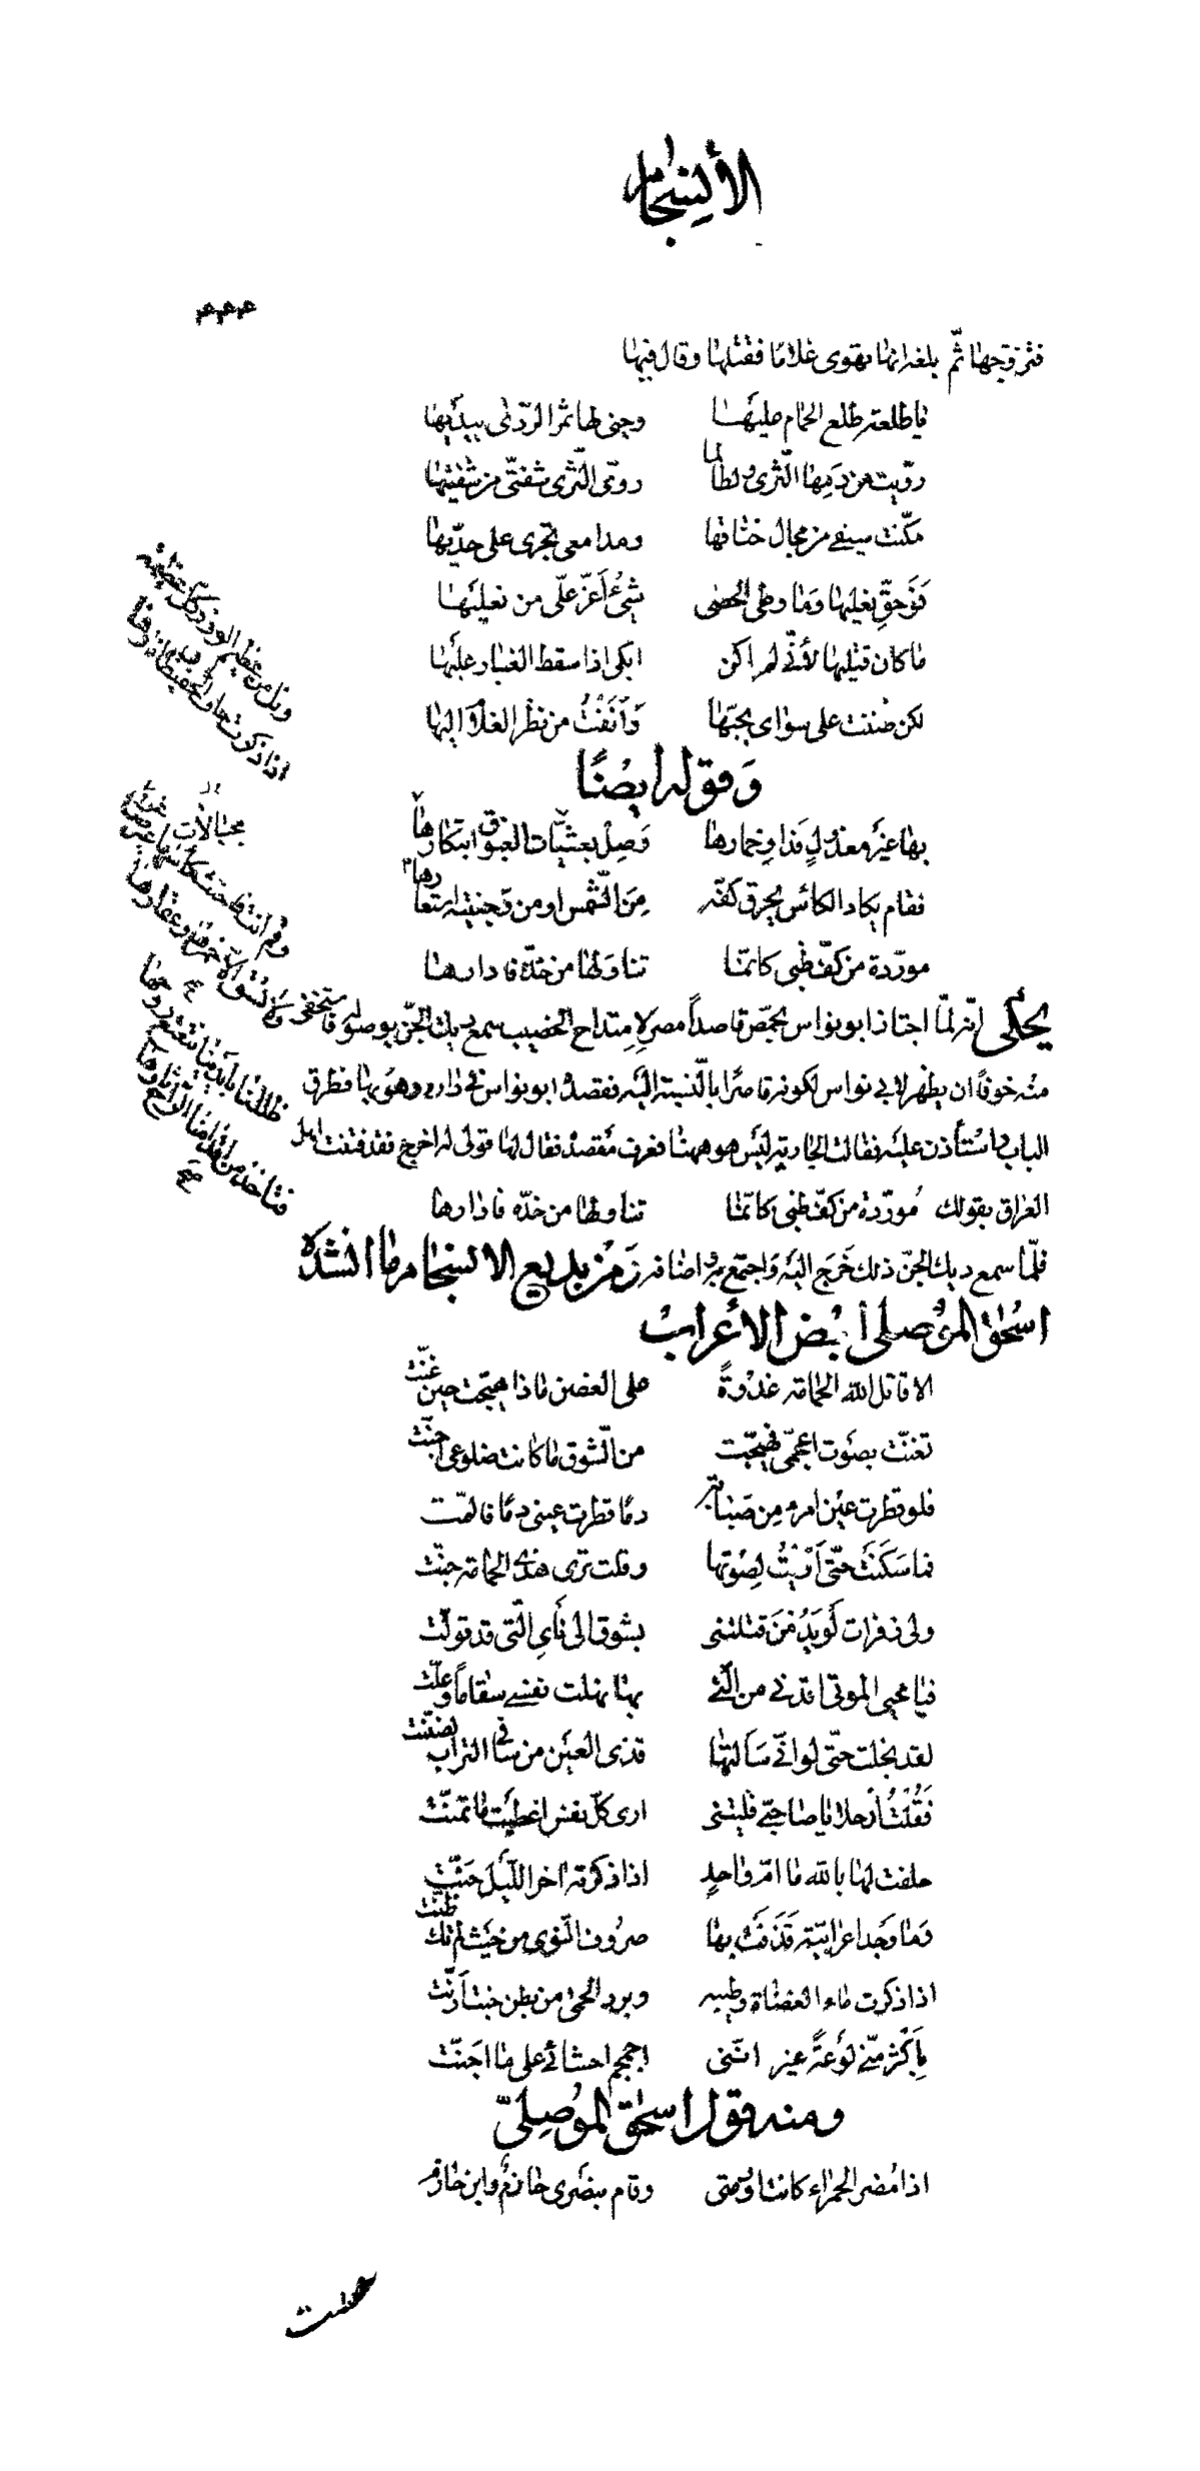 الأنسجام
۴۴۴
فتزوجها ثمّ بلغه انها تهوى غلامًا فقتلها وقال فيها
يا طلعة طلع الحمام عليها وجنى لها ثمر الرّدى بيديها
روّيت من دمها الثّرى ولطالما روّى الثّرى شفتيّ من شفتيها
مكّنت سيفي من مجال خناقها ومدامعي تجرى على خدّيها
فَوَحقِّ نعليها وَما وطى الحصى شيءٌ اَعزّ علَّى من نعليها
ما كان قتليها لأنّي لم اكن ابكى اذا سقط الغبار عليها
لكن ضننت على سواى بحبّها وَاَنفْتُ من نظر الغلام اليها
وَقوله ايضًا
بها غيرَ معذولٍ فداوِ خمارها وَصِلْ بعشيّات الغبوق ابتكارها
ونل من عظيم الوزر كل عظيمة
اذا ذكرت خاف الحفيظان نارها
فقام يكاد الكأس يحرق كفّه مِنَ الشّمس او من وَجنتيه استعارها
مورّدة من كفّ ظبي كانّما تناولها من خدّه فادارها
ظللنا بأيدينا نتعتع روحها
فتأخذ من اقدامنا الراح ثارها
صح
يحكى انّه لمّا اجتاز ابو نواس بحمص قاصداً مصر لاِمتداح الخصيب سمع ديك الجنّ بوصوله فاستخفى
منه خوفًا ان يظهر لابي نواس لكونه قاصرًا بالنّسبة اليه فقصدهُ ابو نواس في داره وهو بها فطرق
الباب واستأذن عليه فقالت الجارية ليس هو ههنا فعرف مقصدهُ فقال لها قولى له اخرج فقد فتنت اهل
العراق بقولك مُورّدة من كفّ ظبي كانّما تناولها من خدّه فادارها
فلمّا سمع ديك الجنّ ذلك خَرَج اليه وَاجتمع به واضافه وَمن بديع الانسجام ما انشده
اسحٰق الموصلي لبعض الأعراب
الا قاتل الله الحمامة غدوةً على الغصن ماذا هيّجت حين غنّت
تغنّت بصوت اعجميّ فهيّجت من الشّوق ما كانت ضلوعى اجنّت
فلو قطرت عين امرء مِن صَبابة دمًا قطرت عيني دمًا فالمّت
فما سَكَنَتْ حتّى اَوَيْتُ لِصَوتها وقلت ترى هذى الحمامة جنّت
ولى زفرات لَو يَدُمْنَ قتلنني بشوق الى نَأىِ الّتى قد تولّت
فيا محيي الموتى اقدني من الّتي بها نهلت نفسي سقاماً وعلّت
لقد بخلت حتّى لو انّي سَالتها قذى العين من سَافي التراب لضنّت
فَقُلْتُ اُرحلا يا صاحبيّ فليتني ارى كلّ نفس اعطيت ما تمنّت
حلفت لها بالله ما امّ واحدٍ اذا ذكرته اخر اللّيل حَنّت
وَما وَجد اعرابيّة قَذَفَتْ بها صروف النّوى من حَيث لم تك ظنّت
اذا ذكرت ماء العضاة وطيبه وبرد الحمى من بطن خبت اَرنّت
بِاَكْثر منّي لَوعةً غير انّنى اجمجم احشائي على ما اجَنّت
ومنه قول اسحٰق الموصلِيّ
اذا مُضر الحمراء كانت ارومتى وقام بنصَرى خازمٌ وابن خازم